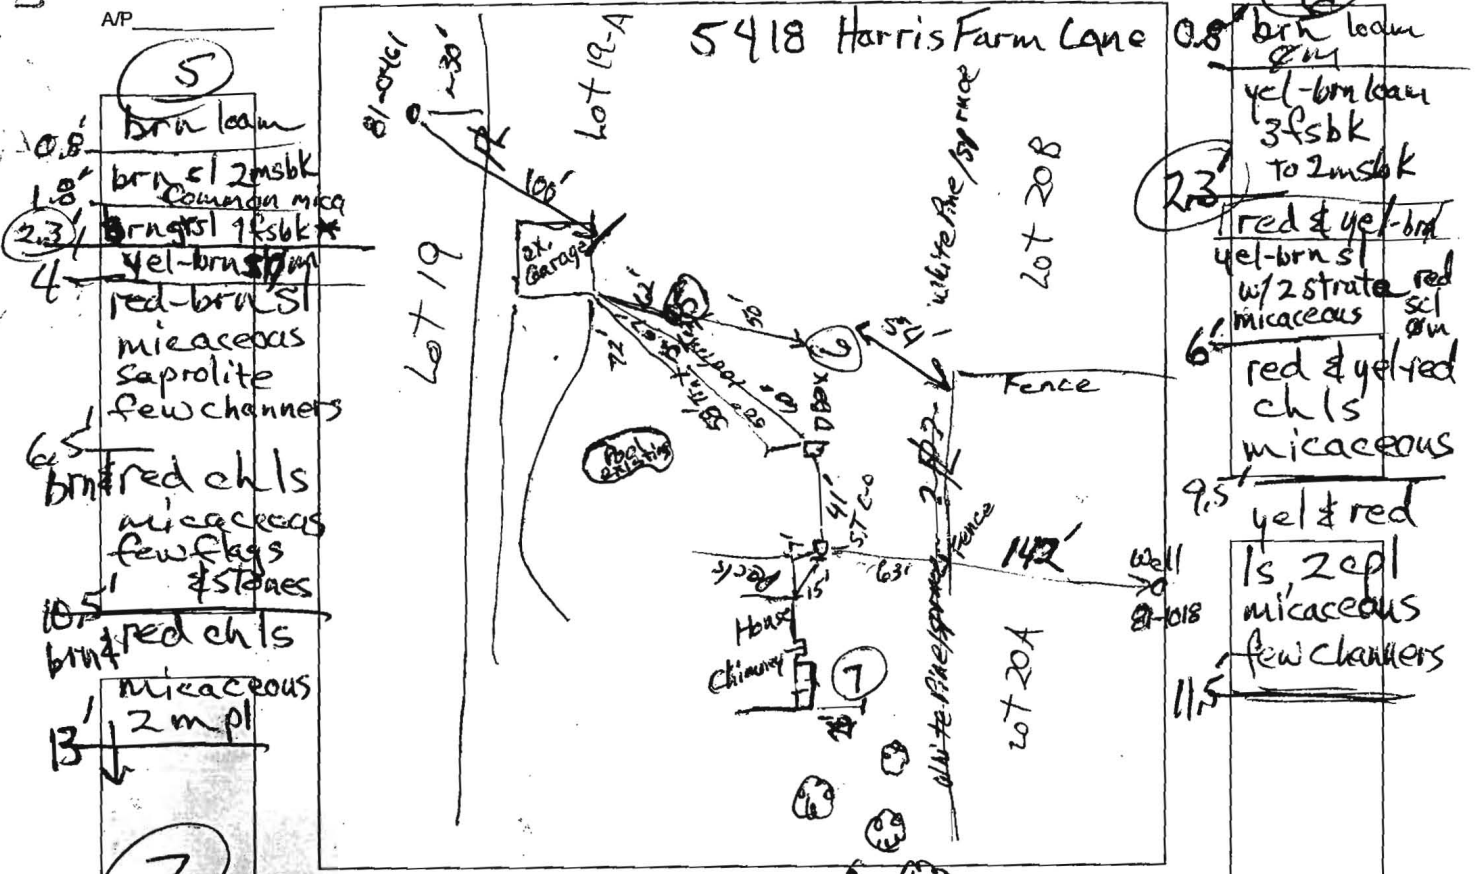 A/P
5
brn loam
0.8'
brn sl 2msbk
1.8'
Common mica
2.3'
brn grsl 1fsbk *
yel-brn sl
4'
red-brn sl
micaceous
saprolite
few channers
6.5'
brn & red ch ls
micaceous
few flags
& stones
10.5'
brn & red ch ls
micaceous
2 m pl
13'
7
5418 Harris Farm Lane
81-0461
~30'
PL
Lot 19-A
100'
2X.
Garage
Lot 19
White Pine/spruce
Lot 20B
62'
5
50'
6
54'
72'
60'
50'
58'
D Box
Fence
Pool
existing
41'
S.T C-O
Fence
142'
Well
81-1018
63'
15'
House
Chimney
7
White Pine/spruce
Lot 20A
brn loam
0.8'
yel-brn loam
3fsbk
to 2msbk
2.3'
red & yel-brn
yel-brn sl
w/2 strata red
scl
micaceous
6'
red & yel-red
ch ls
micaceous
9.5'
yel & red
ls, 2cpl
micaceous
few channers
11.5'